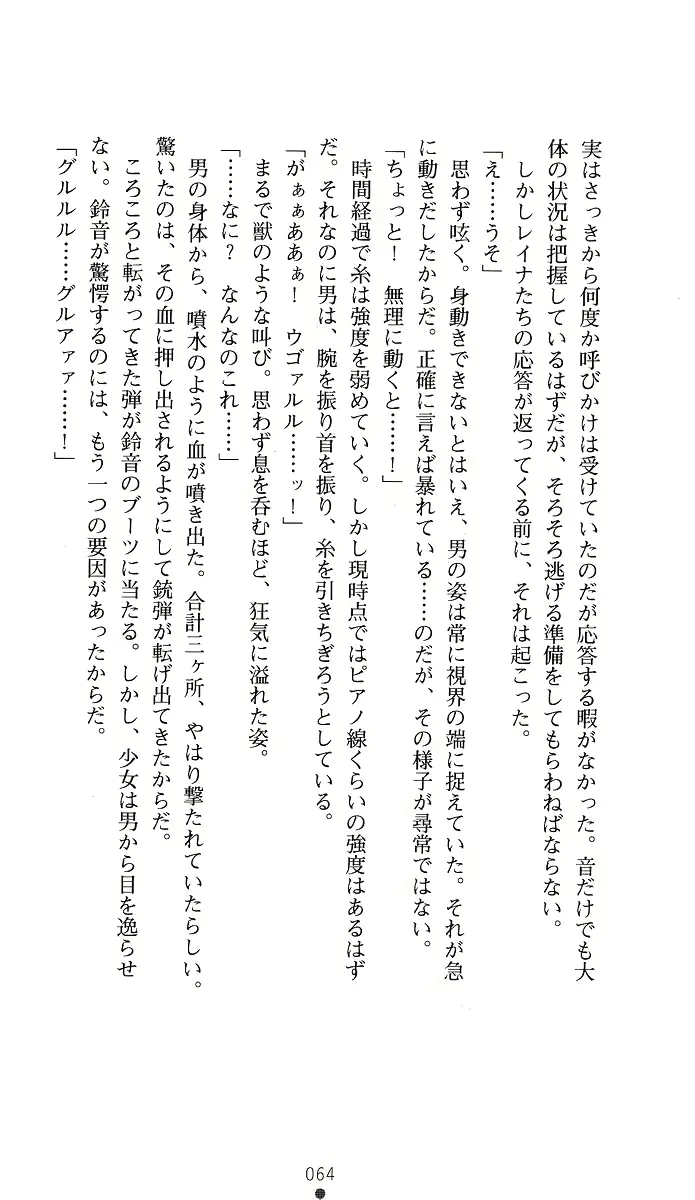 実はさっきから何度か呼びかけは受けていたのだが応答する暇がなかった。音だけでも大
体の状況は把握しているはずだが、そろそろ逃げる準備をしてもらわねばならない。
　しかしレイナたちの応答が返ってくる前に、それは起こった。
「え……うそ」
　思わず呟く。身動きできないとはいえ、男の姿は常に視界の端に捉えていた。それが急
に動きだしたからだ。正確に言えば暴れている……のだが、その様子が尋常ではない。
「ちょっと！　無理に動くと……！」
　時間経過で糸は強度を弱めていく。しかし現時点ではピアノ線くらいの強度はあるはず
だ。それなのに男は、腕を振り首を振り、糸を引きちぎろうとしている。
「がぁぁああぁ！　ウゴァルル……ッ！」
　まるで獣のような叫び。思わず息を呑むほど、狂気に溢れた姿。
「……なに？　なんなのこれ……」
　男の身体から、噴水のように血が噴き出た。合計三ヶ所、やはり撃たれていたらしい。
驚いたのは、その血に押し出されるようにして銃弾が転げ出てきたからだ。
　ころころと転がってきた弾が鈴音のブーツに当たる。しかし、少女は男から目を逸らせ
ない。鈴音が驚愕するのには、もう一つの要因があったからだ。
「グルルル……グルアァァ……！」
064